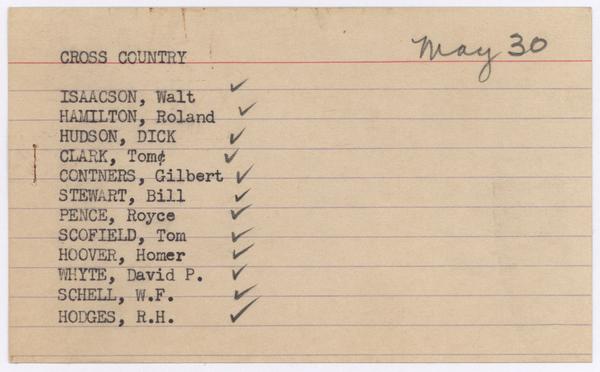 May 30
CROSS COUNTRY
ISAACSON, Walt ✓
HAMILTON, Roland ✓
HUDSON, DICK ✓
CLARK, Tom¢ ✓
CONTNERS, Gilbert ✓
STEWART, Bill ✓
PENCE, Royce ✓
SCOFIELD, Tom ✓
HOOVER, Homer ✓
WHYTE, David P. ✓
SCHELL, W.F. ✓
HODGES, R.H. ✓